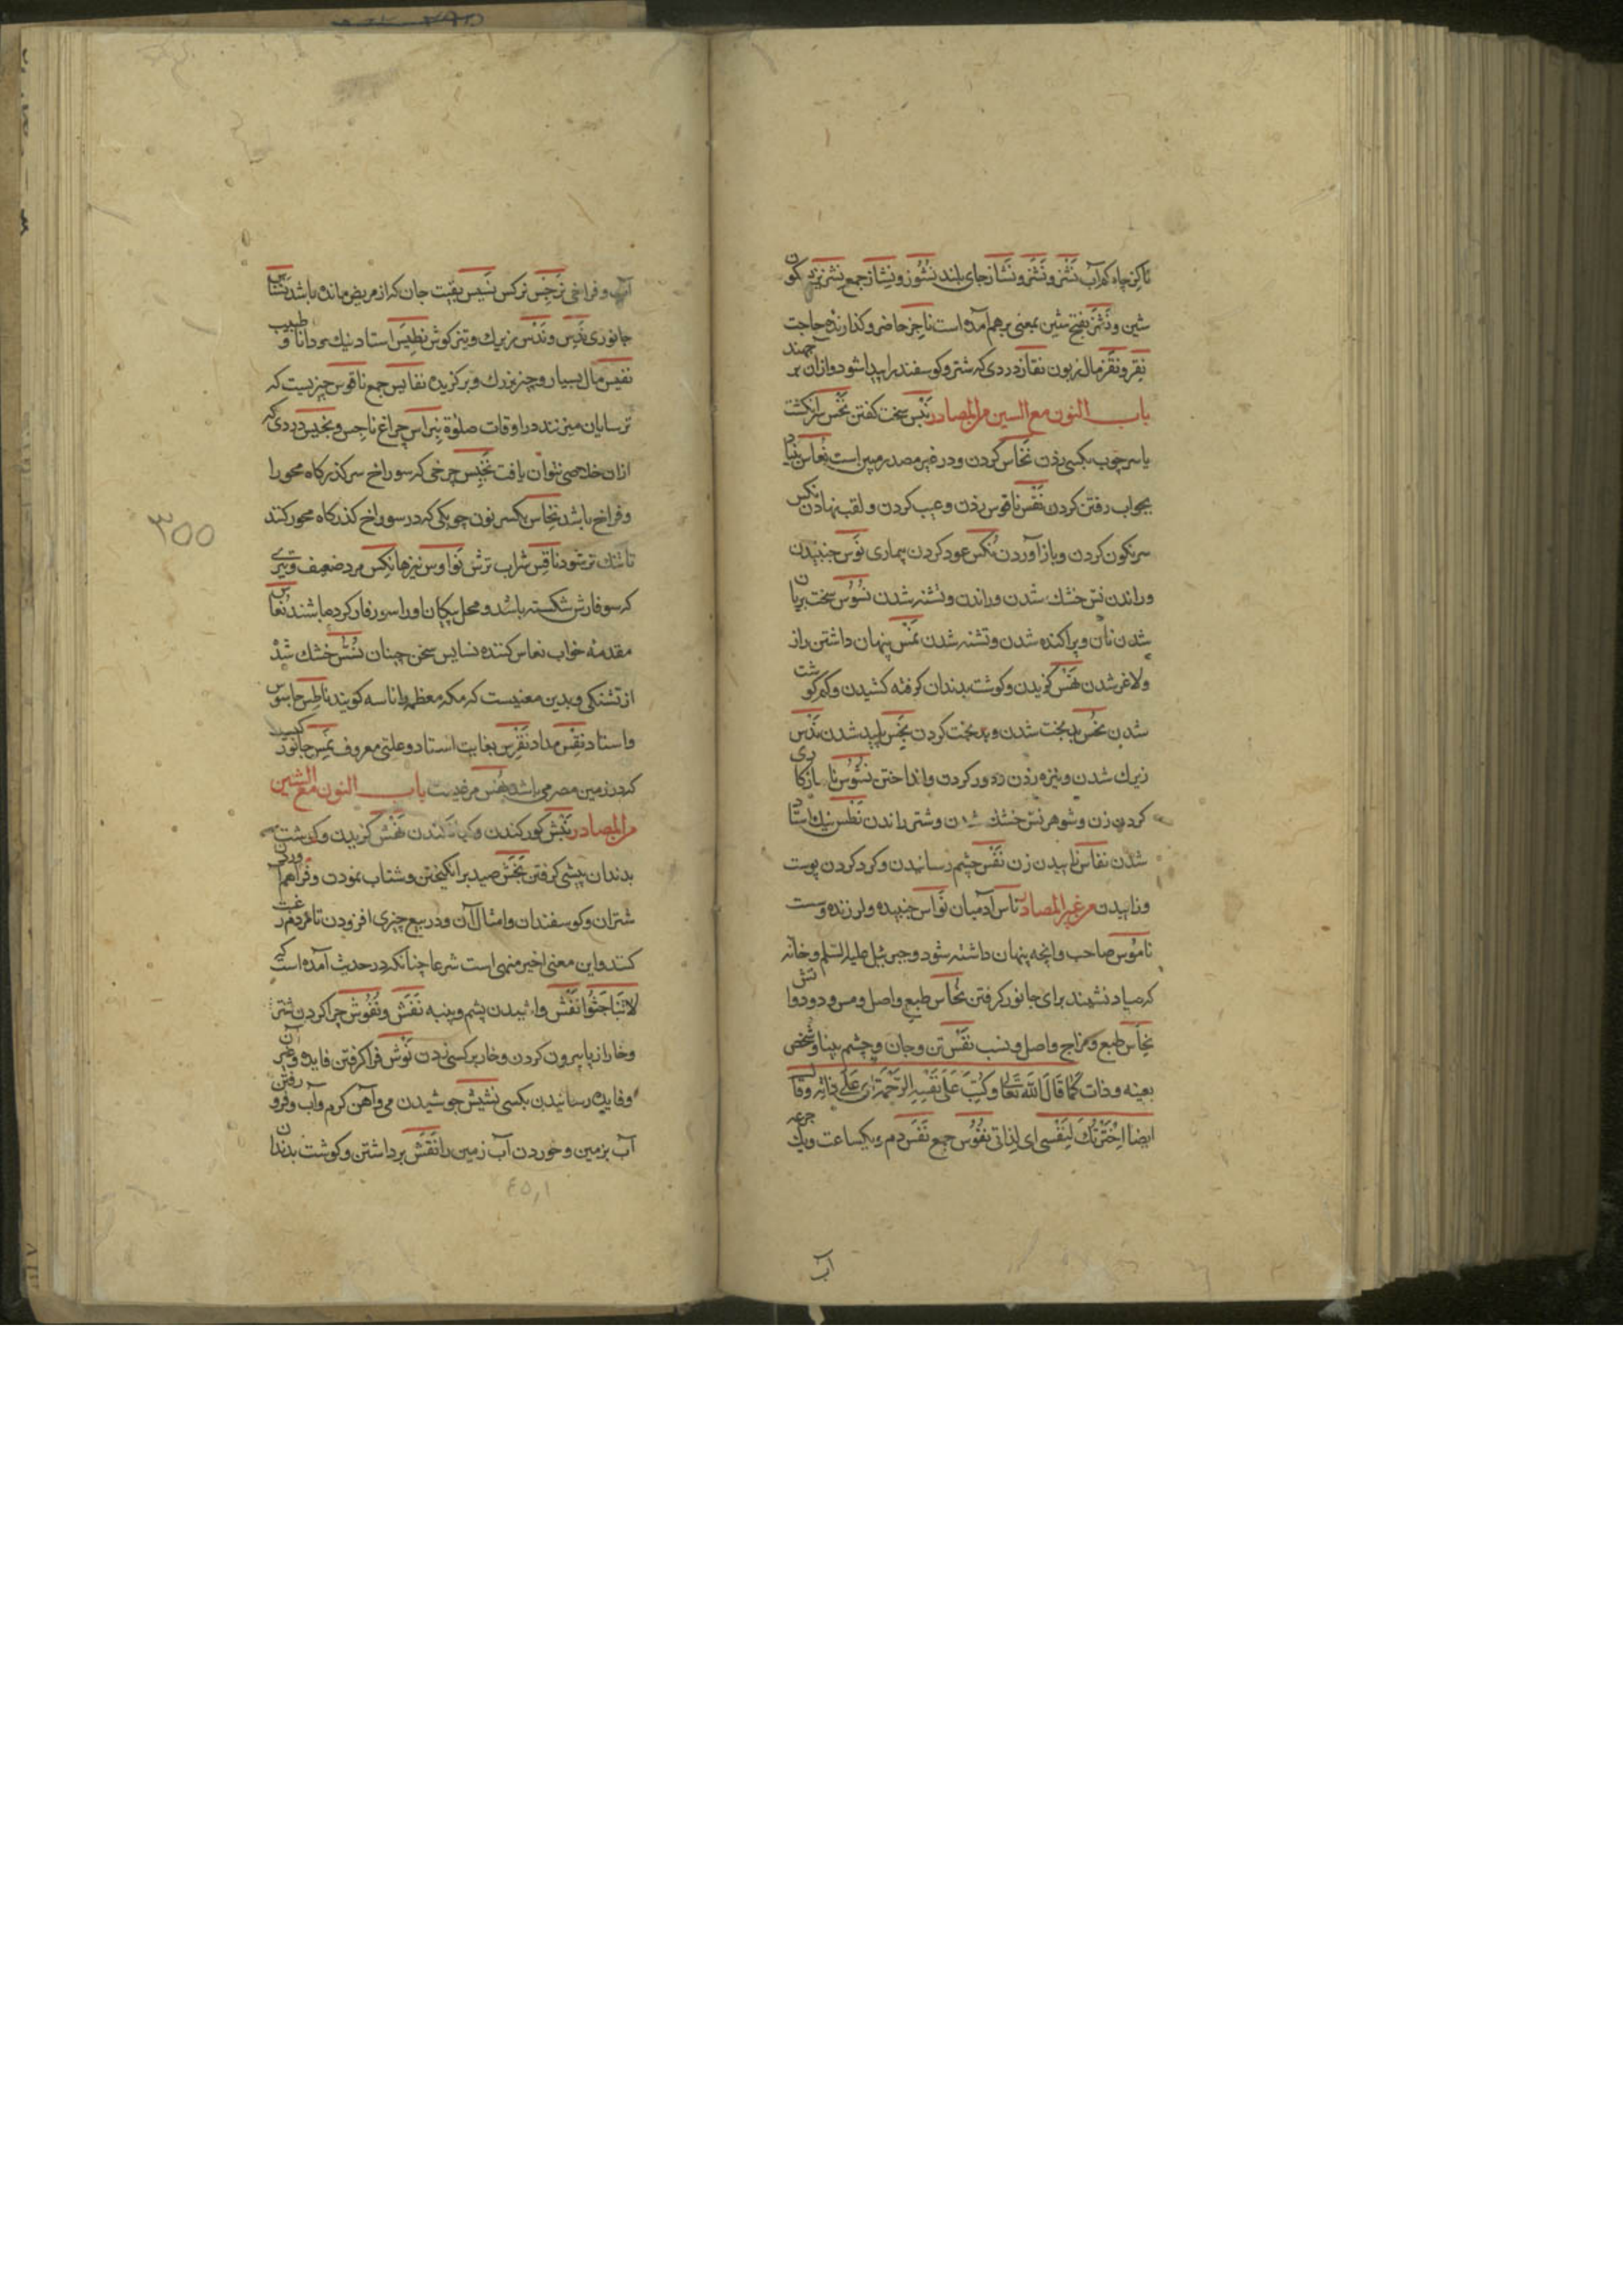 ناکز چاه کم آب نَشْز و نَشَز و نشاز جای بلند نُشُوز و نِشاز جمع نشز بسکون
شین و نشز بفتح شین بمعنی برهم آمده است ناجز حاضر و کذارنده حاجت
نِقز و نَقَز مال زبون نقاز دردی که شتر و کوسفند را پیدا شود و ازان بر جهند
باب النون مع السین من المصادر نَبْس سخت کفتن نَخْس سرانکشت
یا سر چوب بکسی زدن نخاس کردن و در غیر مصدر مبین است نعاس بنیاد
بجواب رفتن کردن نَقْس ناقوس زدن و عیب کردن و لقب نهادن نکس
سرنکون کردن و باز آوردن نُکس عود کردن بیماری نَوْس جنبیدن
و راندن نس خشك شدن و راندن و تشنه شدن نُسُوس سخت بریان
شدن نان و پراکنده شدن و تشنه شدن نَمْس پنهان داشتن راز
و لاغر شدن نَهْس کزیدن و کوشت بدندان کرفته کشیدن و کم کوشت
شدن نَحْس بدبخت شدن و بدبخت کردن نَجَس پلید شدن نَدْس
زیرك شدن و نیزه زدن و دور کردن و انداختن نُشُوس ناسازکاری
کردن زن و شوهر نس خشك شدن و شتر راندن نَطْس نیك استاد
شدن نفاس زاییدن زن نَفْس چشم رسانیدن و کرد کردن پوست
و زاییدن من غیر المصادر ناس آدمیان نَوّاس جنبیده و لرزنده و سست
ناموس صاحب و انچه پنهان داشته شود و جبرئیل علیه السلم و خانه
که صیاد نشیند برای جانور کرفتن نُحاس طبع و اصل و مس و دود و آتش
نِحاس طبع و مزاج و اصل و نسب نَفْس تن و جان و چشم بینا و شخص
بعینه و ذات کما قال الله تعالی وکَتَبَ عَلَی نَفْسِهِ الرَّحْمَةَ ای علی ذاته وقال
ایضا اِخْتَرْتُكَ لِنَفْسی ای لذاتی نُفُوس جمع نَفَس دم و یکساعت و یك جرعه
آب
آب و فراخی نرجس نرکس نَسِیس بقیت جان که از مریض مانده باشد نسناس
جانوری نَدِس و نَدُس زیرك و تیز کوش نِطِیس استاد نیك و دانا و طبیب
نفیس مال بسیار و چیز بزرك و برکزیده نفایس جمع ناقوس چیزیست که
ترسایان میزنند در اوقات صلوة نِبراس چراغ ناجس و نجیس دردی که
ازان خلاصی نتوان یافت نَخِیس چرخی که سوراخ سر کذرکاه محور را
و فراخ باشد نِخاس بکسر نون چوبکی که در سوراخ کذرکاه محور کنند
تا تنك تر شود ناقس شراب ترش نواوس نیزها نِکس مرد ضعیف و تیری
که سوفارش شکسته باشد و محل پیکان او را سوفار کرده باشند نُعاس
مقدمهٔ خواب نعاس کننده نسایس سخن چینان نُسّس خشك شده
از تشنکی و بدین معنیست که مکه معظمه را ناسه کویند ناطس جاسوس
و استاد نِقْس مداد نِقْرِس بغایت استاد و علتی معروف نِمْس جانوریست
که در زمین مصر می باشد نُهَس مرغیست باب النون مع الشین
من المصادر نَبْش کور کندن و کیاه کندن نَهْش کزیدن و کوشت
بدندان پیش کرفتن نَجْش صید برانکیختن و شتاب نمودن و فراهم آوردن
شتران و کوسفندان و امثال آن و در بیع چیزی افزودن تا مردم رغبت
کنند و این معنی اخیر منهی است شرعا چنانکه در حدیث آمده است که
لاتناجشوا نَفْش وا شیدن پشم و پنبه نَفَش و نُفُوش چرا کردن شتر
و خار از پا بیرون کردن و خار بر کسی زدن نَوْش فرا کرفتن فایده و غیر آن
و فایده رسانیدن بکسی نشیش جوشیدن می و آهن کرم و آب و فرو رفتن
آب بزمین و خوردن آب زمین را نَقْش برداشتن و کوشت بدندان
٣٥٥